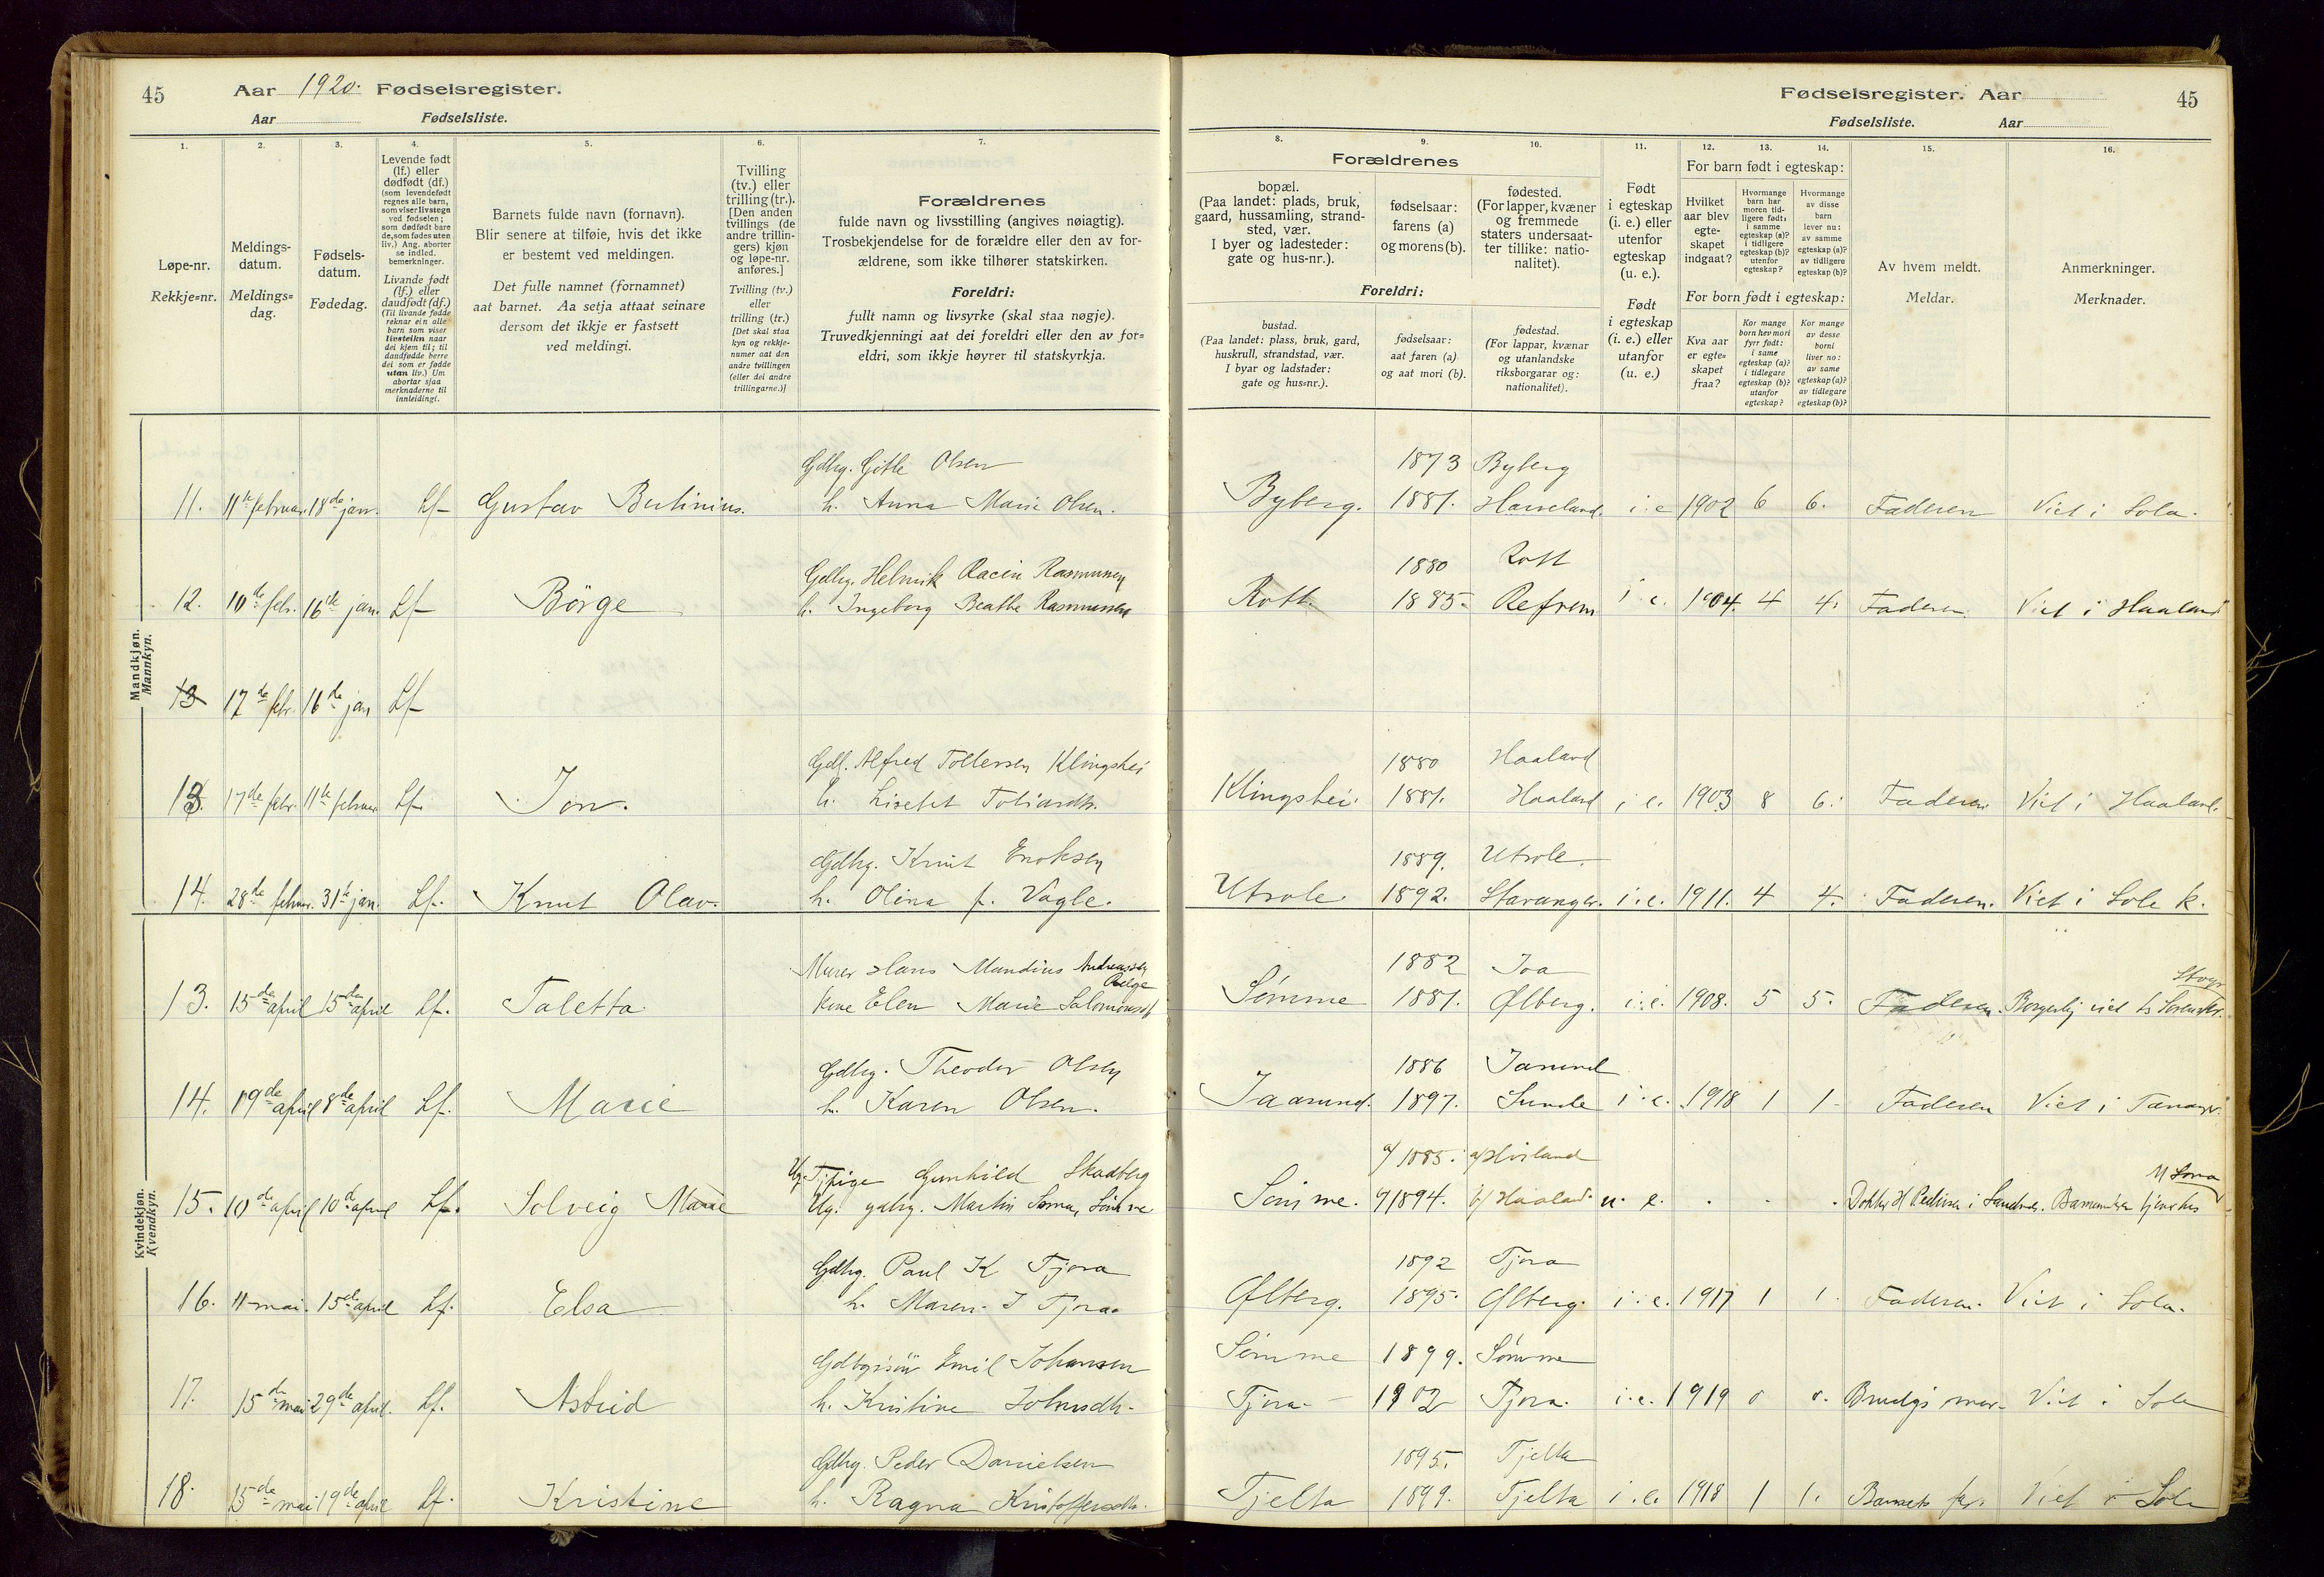 45
Aar 1920. Fødselsregister.
Aar Fødselsliste.
1.
2.
3.
4.
5.
6.
7.
Løpe-nr.
Rekkje=nr.
Meldings-
datum.
Meldings=
dag.
Fødsels-
datum.
Fødedag.
Levende født
(lf.) eller
dødfødt (df.)
(som levendefødt
regnes alle barn,
som viser livstegn
ved fødselen;
som dødfødt bare
de, som fødes uten
liv.) Ang. aborter
se indled.
bemerkninger.
Livande født
(lf.) eller
daudfødt (df.)
(Til livande fødde
reknar ein alle
barn som viser
livsteikn naar
dei kjem til; til
daudfødde berre
dei som er fødde
utan liv.) Um
abortar sjaa
merknaderne til
innleidingi.
Barnets fulde navn (fornavn).
Blir senere at tilføie, hvis det ikke
er bestemt ved meldingen.
Det fulle namnet (fornamnet)
aat barnet. Aa setja attaat seinare
dersom det ikkje er fastsett
ved meldingi.
Tvilling
(tv.) eller
trilling (tr.).
[Den anden
tvillings (de
andre trillin-
gers) kjøn
og løpe-nr.
anføres.]
Tvilling (tv.)
eller
trilling (tr.)
[Det skal staa
kyn og rekkje-
numer aat den
andre tvillingen
(eller dei andre
trillingarne.)]
Forældrenes
fulde navn og livsstilling (angives nøiagtig).
Trosbekjendelse for de forældre eller den av for-
ældrene, som ikke tilhører statskirken.
Foreldri:
fullt namn og livsyrke (skal staa nøgje).
Truvedkjenningi aat dei foreldri eller den av for=
eldri, som ikkje høyrer til statskyrkja.
Mandkjøn.
Mannkyn.
Gdbrg. Gitle Olsen
11. 11te februar. 18de jan. Lf Gustav Bertinius. h. Anna Marie Olsen.
Gdbrg. Helmik Racin Rasmussen
12. 10de febr. 16de jan. Lf Börge h. Ingeborg Beathe Rasmussen
13 17de febr. 16de jan Lf
Gdb. Alfred Tollefsen Klingshei
13. 17de febr. 11te februar Lf. Jon. h. Lisebet Tobiasdtr.
Gdbrg. Knut Enoksen
14. 28de februar. 31te jan. Lf. Knut Olav. h. Olina f. Vagle.
Kvindekjøn.
Kvendkyn.
Murer Hans Mandius Andreassen
13. 15de april 15de april Lf. Taletta. kone Elen Marie Salomonsdtr
Gdbrg. Theodor Olsen
14. 19de april 8de april Lf. Marie h. Karen Olsen.
Ug. Tjpige Gunhild Skadberg
15. 10de april 10d april Lf. Solveig Marie Ug. gdbrg. Martin Soma, Sömme
Gdbrg. Paul K Tjora
16. 11 mai. 15de april Lf. Elsa h. Maren J Tjora
Gdbrgrsön Emil Johansen
17. 15de mai 29de april. Lf. Astrid h. Kristine Johnsdtr.
Gdbrg. Peder Danielsen
18. 15de mai 19de april Lf. Kristine h. Ragna Kristoffersdtr.
Fødselsregister. Aar
45
Fødselsliste. Aar
8.
9.
10.
11.
12.
13.
14.
15.
16.
Forældrenes
bopæl.
(Paa landet: plads, bruk,
gaard, hussamling, strand-
sted, vær.
I byer og ladesteder:
gate og hus-nr.).
fødselsaar:
farens (a)
og morens (b).
fødested.
(For lapper, kvæner
og fremmede
staters undersaat-
ter tillike: natio-
nalitet).
Foreldri:
bustad.
(Paa landet: plass, bruk, gard,
huskrull, strandstad, vær.
I byar og ladstader:
gate og hus=nr.).
fødselsaar:
aat faren (a)
og aat mori (b).
fødestad.
(For lappar, kvænar
og utanlandske
riksborgarar og:
nationalitet).
Født
i egteskap
(i. e.) eller
utenfor
egteskap
(u. e.).
Født
i egteskap
(i. e.) eller
utanfor
(u. e.)
For barn født i egteskap:
Hvilket
aar blev
egte-
skapet
indgaat?
Hvormange
barn har
moren tid-
ligere født:
i samme
egteskap (a)?
i tidligere
egteskap (b)?
utenfor
egteskap?
Hvormange
av disse
barn
lever nu:
av samme
egteskap (a)?
av tidligere
egteskap (b)?
For born født i egteskap:
Kva aar
er egte=
skapet
fraa?
Kor mange
born hev mori
fyrr født:
i same
egteskap (a)?
i tidlegare
egteskap (b)?
utanfor
egteskap?
Kor mange
av desse
borni
liver no:
av same
egteskap (a)?
av tidlegare
egteskap (b)?
Av hvem meldt.
Meldar.
Anmerkninger.
Merknader.
1873 Byberg
Byberg. 1881. i. e 1902 6 6. Faderen Viet i Sola.
1880 Rott
Rott. 1885. Refsnes i. e. 1904. 4 4. Faderen. Viet i Haaland
1880 Haaland
Klingshei. 1881. Haaland i. e. 1903 8 6. Faderen. Viet i Haaland.
1889. Utsole.
Utsole. 1892. Stavanger. i. e. 1911. 4 4. Faderen. Viet i Sole k.
1882 Joa
Sømme 1881. Ølberg. i. e. 1908. 5 5. Faderen. Borgerlig viet
1886 Jaasund
Jaasund. 1897. Sunde i. e. 1918 1 1. Faderen Viet i Tananger.
a/ 1885. a/ Hviland
M Soma
Sömme. b/ 1894. b/ Haaland. u. e. Doktor H Pedersen i Sandnes. Barnemoder tjener hos
1892 Tjora
Ølberg. 1895. Ølberg. i. e. 1917 1 1. Faderen. Viet i Sola.
Sömme 1899. Sömme
Tjora. 1902 Tjora. i. e. 1919 0 0. Viet i Sole
1895. Tjelta
Tjelta 1899. Tjelta i. e. 1918 1 1. Barnets far. Viet i Sole